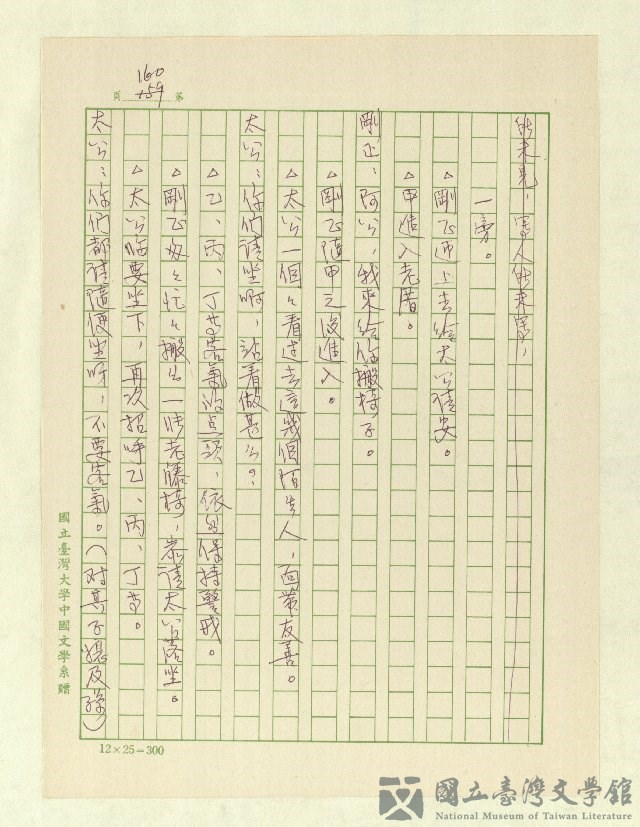 160
159
第 頁
一旁。
△剛正迎上去給太公請安。
△甲進入老厝。
剛正：阿公，我來給你搬椅子。
△剛正隨甲之後進入。
△太公一個々看过去這幾個陌生人，面帶友善。
太公：你們請坐啊，站着做甚么？
△乙、丙、丁等客氣的点頭，依舊保持警戒。
△剛正匆々忙々搬出一張老藤椅，恭請太公落坐。
△太公臨要坐下，再次招呼乙、丙、丁等。
太公：你們都請隨便坐呀，不要客氣。（对其子媳及孫）
國立臺灣大學中國文學系贈
12×25=300
國立臺灣文學館
National Museum of Taiwan Literature